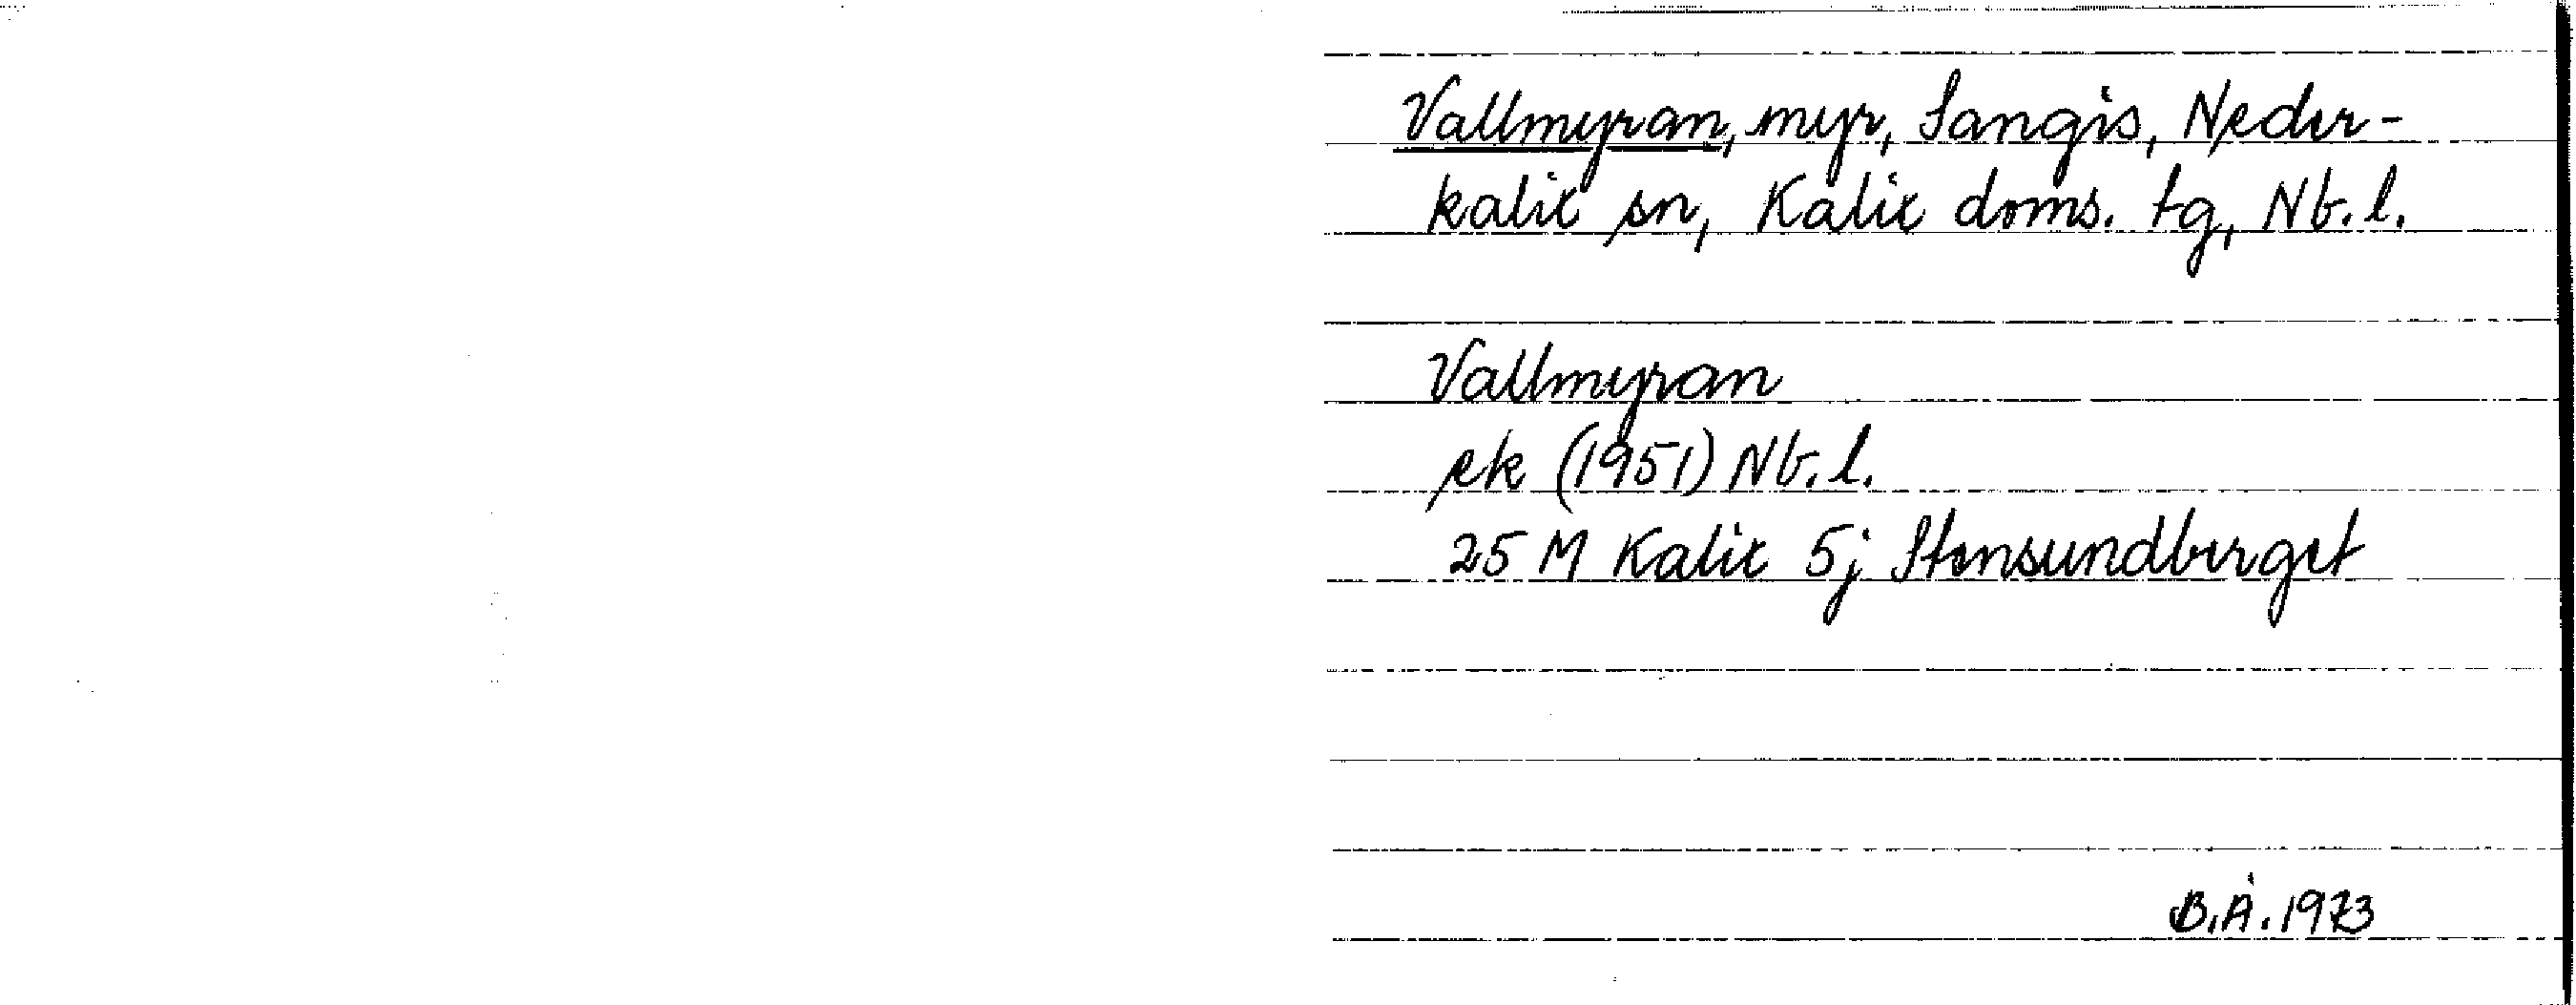 Vallmyran, myr, Sangis, Neder-
kalix sn, Kalix doms. tg, Nb. l.
Vallmyran
ek (1951) Nb. l.
25 M Kalix 5j Stensundberget
B.Å. 1973